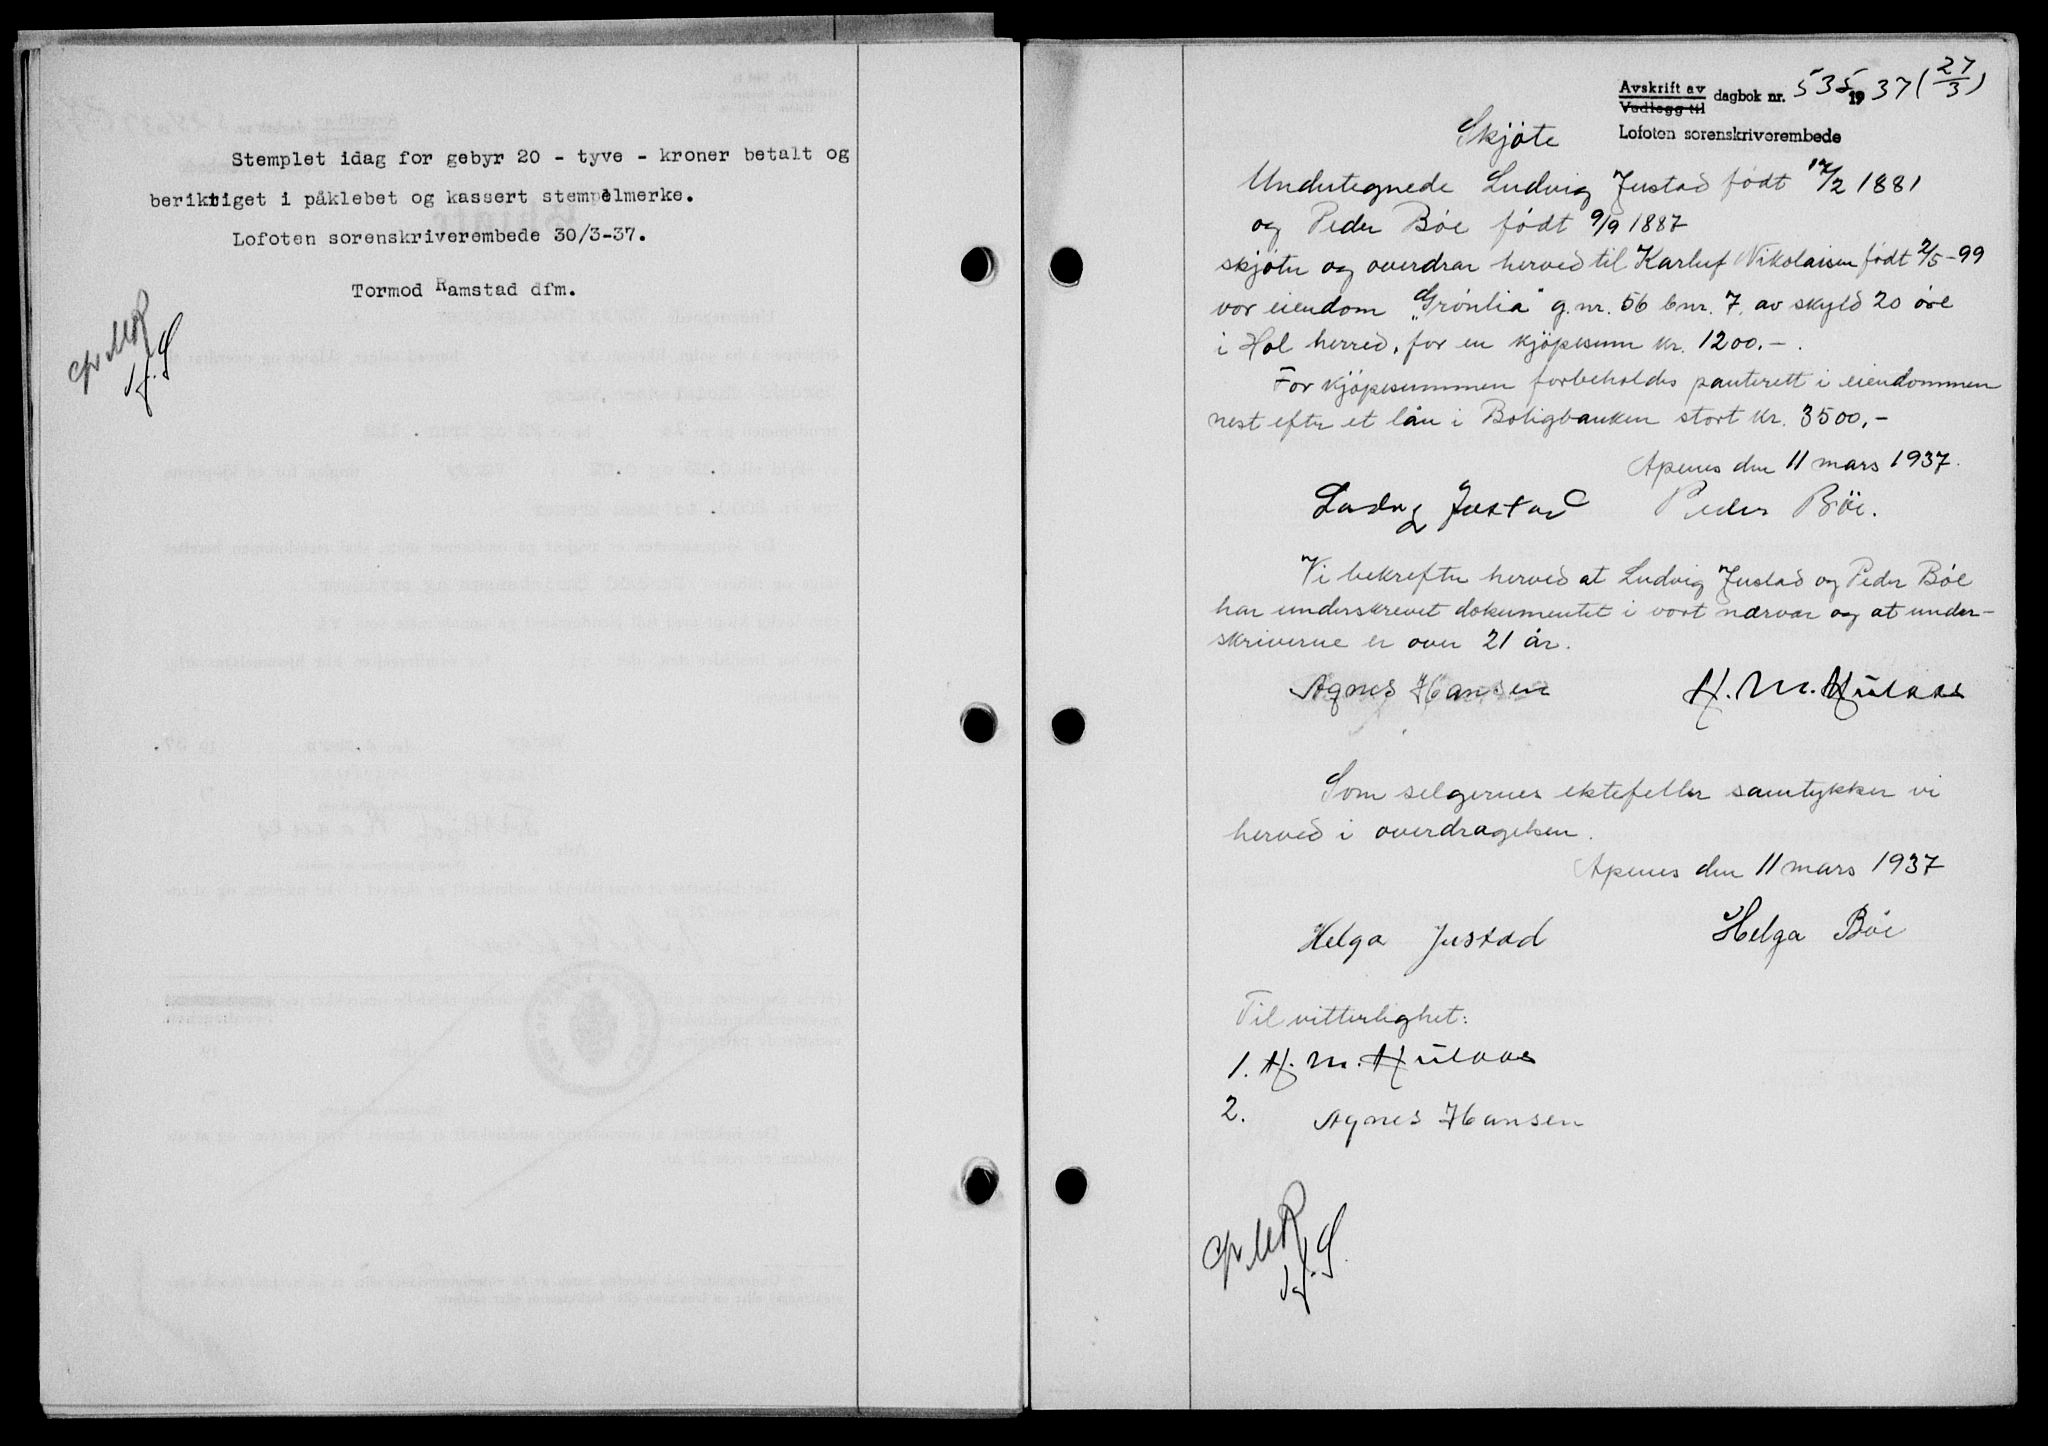 Stemplet idag for gebyr 20 - tyve - kroner betalt og
beriktiget i påklebet og kassert stempelmerke.
Lofoten sorenskriverembede 30/3-37.
Tormod Ramstad dfm.
Avskrift av
Vedlegg til
dagbok nr. 535 1937 (27/3)
Lofoten sorenskriverembede
Skjøte
Undertegnede Ludvig Justad født 17/2 1881
og Peder Bøe født 9/9 1887
skjøter og overdrar herved til Karluf Nikolaisen født 2/5-99
vor eiendom "Grønlia" g.nr. 56 bnr. 7, av skyld 20 øre
i Hol herred, for en kjøpesum kr. 1200.-.
For kjøpesummen forbeholdes panterett i eiendommen
nest efter et lån i Boligbanken stort kr. 3500,-
Apenes den 11 mars 1937.
Ludvig Justad Peder Bøe.
Vi bekrefter herved at Ludvig Justad og Peder Bøe
har underskrevet dokumentet i vort nærvær og at under-
skriverne er over 21 år.
Agnes Hansen H. M. Hulaas
Som selgernes ektefeller samtykker vi
herved i overdragelsen.
Apenes den 11 mars 1937
Helga Justad Helga Bøe
Til vitterlighet:
1. H. M. Hulaas
2. Agnes Hansen